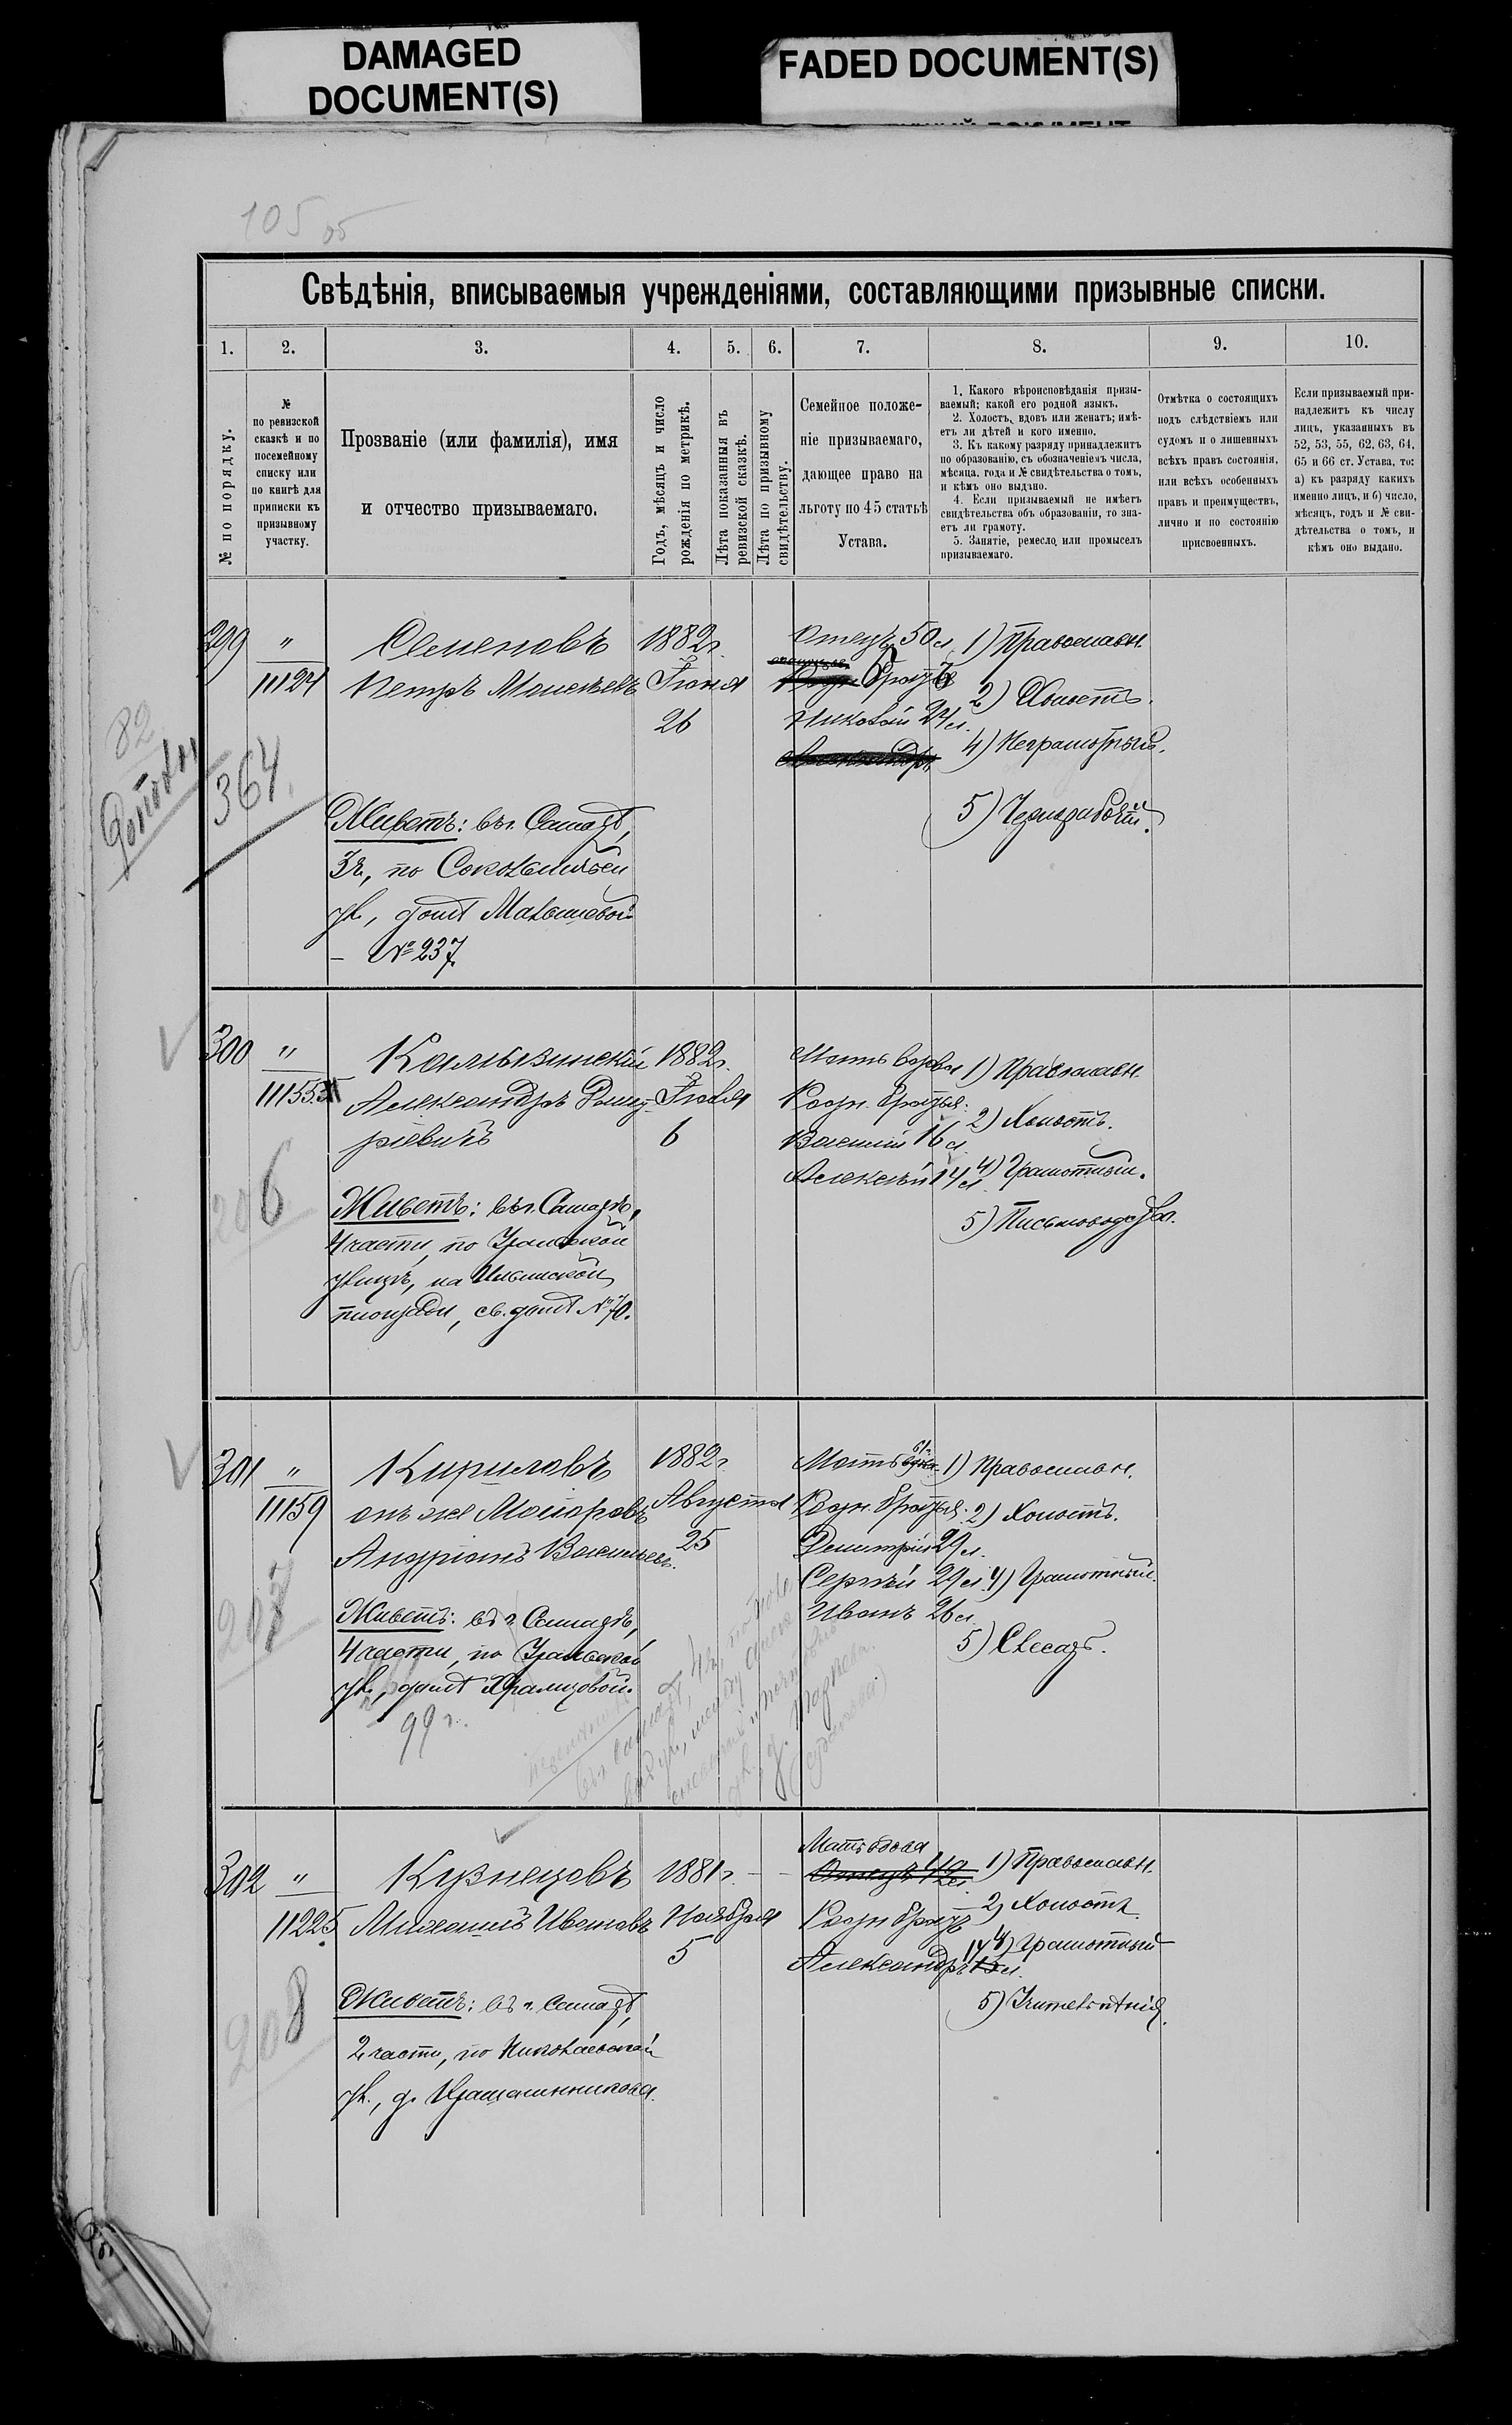 DAMAGED
DOCUMENT(S)
FADED DOCUMENT(S)
105
Свѣдѣнія, вписываемыя учрежденіями, составляющими призывные списки.
1. 2. 3. 4. 5. 6. 7. 8. 9. 10.
№ по порядку.
№
по ревизской
сказкѣ и по
посемейному
списку или
по книгѣ для
приписки къ
призывному
участку.
Прозваніе (или фамилія), имя
и отчество призываемаго.
Годъ, мѣсяцъ и число
рожденія по метрикѣ.
Лѣта показанныя въ
ревизской сказкѣ.
Лѣта по призывному
свидѣтельству.
Семейное положе-
ніе призываемаго,
дающее право на
льготу по 45 статьѣ
Устава.
1. Какого вѣроисповѣданія призы-
ваемый; какой его родной языкъ.
2. Холостъ, вдовъ или женатъ; имѣ-
етъ ли дѣтей и кого именно.
3. Къ какому разряду принадлежитъ
по образованію, съ обозначеніемъ числа,
мѣсяца, года и № свидѣтельства о томъ,
и кѣмъ оно выдано.
4. Если призываемый не имѣетъ
свидѣтельства объ образованіи, то зна-
етъ ли грамоту.
5. Занятіе, ремесло или промыселъ
призываемаго.
Отмѣтка о состоящихъ
подъ слѣдствіемъ или
судомъ и о лишенныхъ
всѣхъ правъ состоянія,
или всѣхъ особенныхъ
правъ и преимуществъ,
лично и по состоянію
присвоенныхъ.
Если призываемый при-
надлежитъ къ числу
лицъ, указанныхъ въ
52, 53, 55, 62, 63, 64,
65 и 66 ст. Устава, то:
а) къ разряду какихъ
именно лицъ, и б) число,
мѣсяцъ, годъ и № сви-
дѣтельства о томъ, и
кѣмъ оно выдано.
299
"
11124
82
364.
Семеновъ
Петръ Моисеевъ
1882 г.
Іюня
26
Отецъ 50 л.
братъ
Николай 24 л.
1) Православн.
2) Холостъ.
4) Неграмотный.
5) Чернорабочій.
Живетъ: въ г. Самарѣ,
3 ч., по Сокольничьей
ул., домъ Малышевой
— № 237.
300
"
11155
206
Кальвинскій
Александръ Дмит-
ріевичъ
1882 г.
Іюля
6
Мать вдова
Родн. братья:
Василій 16 л.
Алексѣй 14 л.
1) Православн.
2) Холостъ.
4) Грамотный.
5) Письмоводство.
Живетъ: въ г. Самарѣ,
4 части, по Уральской
улицѣ, на Ильинской
площади, св. домъ № 70.
301
"
11159
207
Кириловъ
онъ же Маіоровъ
Андріанъ Васильев.
1882 г.
Августа
25
Мать вдова
Родн. братья:
Дмитрій 29 л.
Сергѣй 29 л.
Иванъ 26 л.
1) Православн.
2) Холостъ.
4) Грамотный.
5) Слесарь.
Живетъ: въ г. Самарѣ,
4 части, по Уральской
ул., домъ Храмцовой.
99 г.
302
"
11225
208
Кузнецовъ
Михаилъ Ивановъ
1881 г.
Ноября
5
Мать вдова
Родн. братъ
Александръ 14 л.
1) Православн.
2) Холостъ.
4) Грамотный
Живетъ: въ г. Самарѣ,
2 части, по Николаевской
ул., д. Крашенинникова.